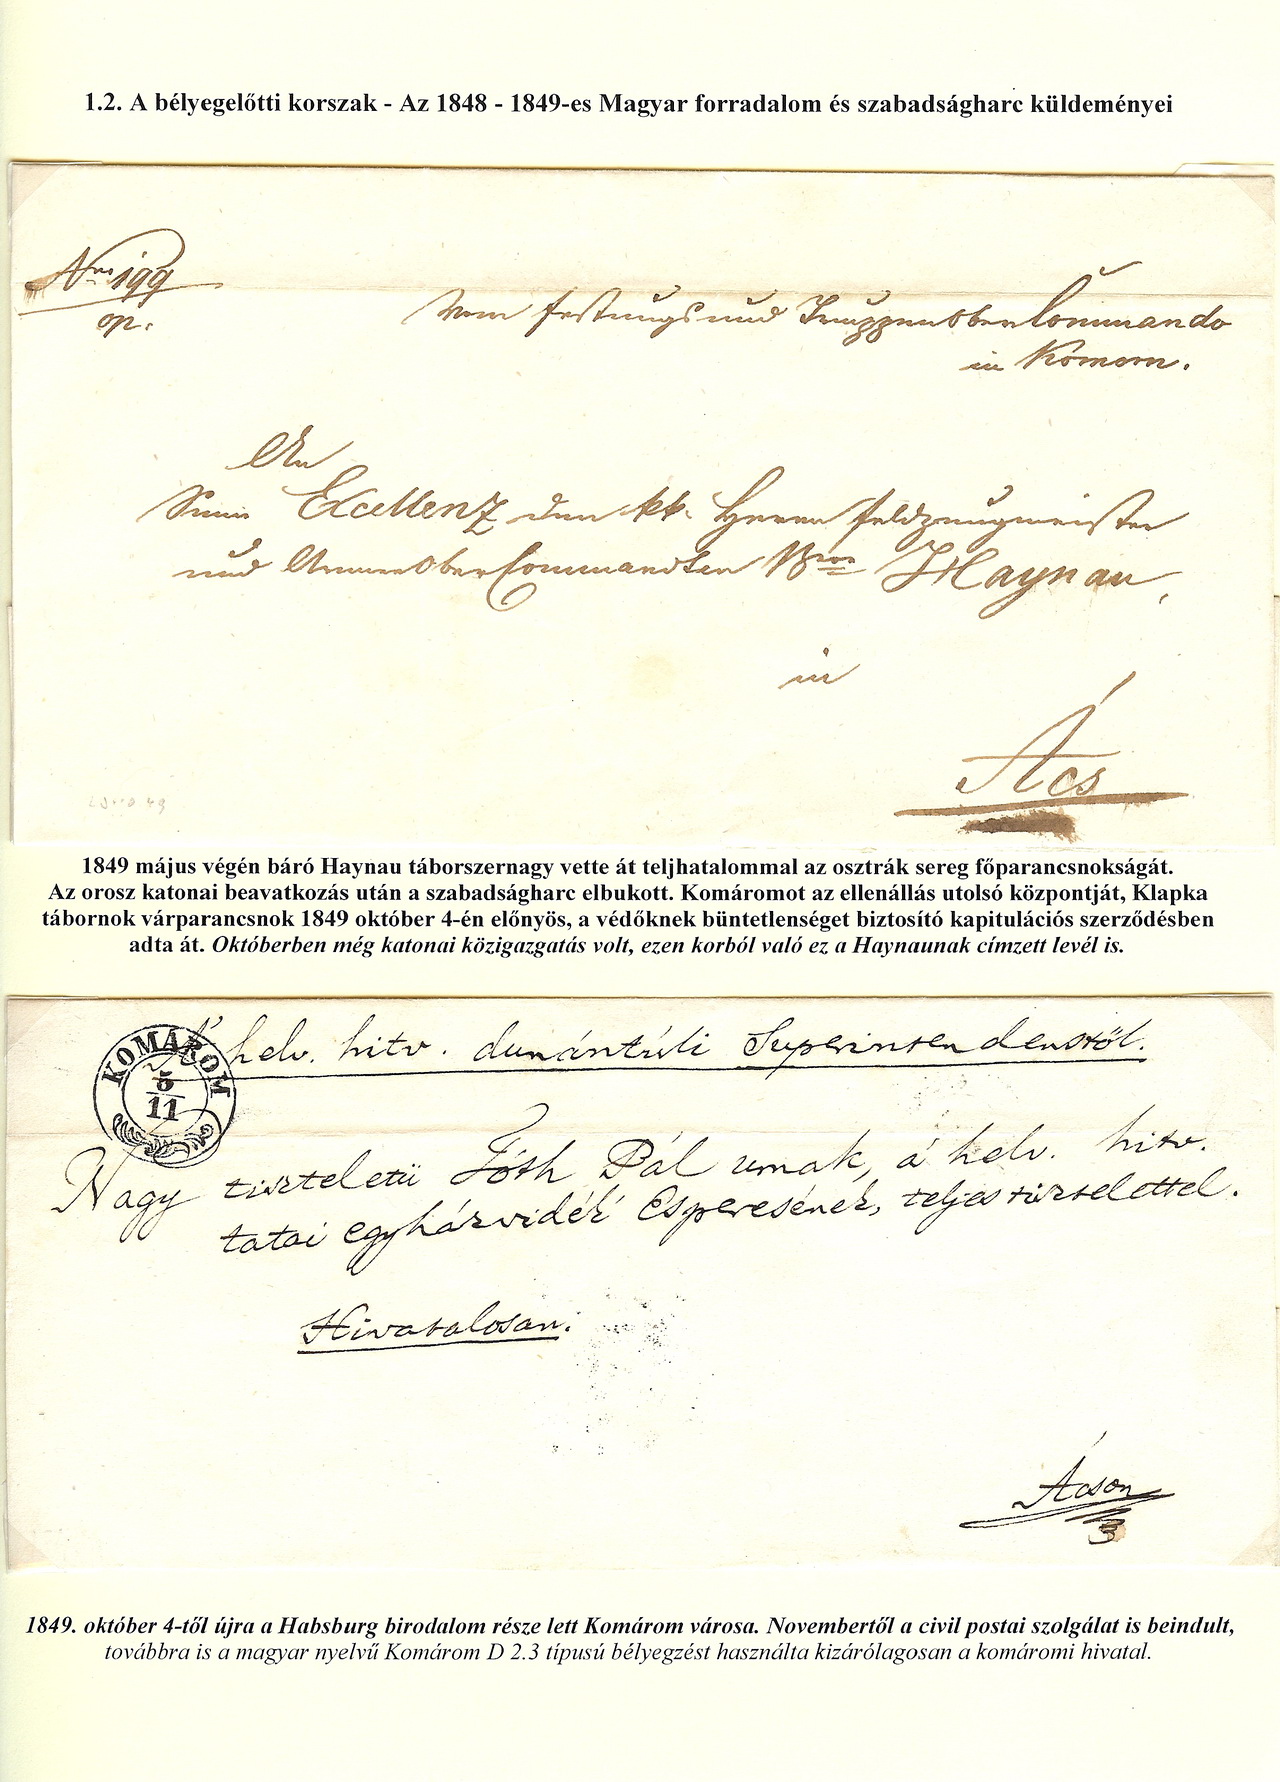 1.2. A bélyegelőtti korszak - Az 1848 - 1849-es Magyar forradalom és szabadságharc küldeményei
Nro 199
op.
Vom Festungs und Truppen Ober Commando
in Komorn.
An
Seine Excellenz den kk. Herrn Feldzeugmeister
und Armee Ober Commandten Bron Haynau,
in
Ács
1849 május végén báró Haynau táborszernagy vette át teljhatalommal az osztrák sereg főparancsnokságát.
Az orosz katonai beavatkozás után a szabadságharc elbukott. Komáromot az ellenállás utolsó központját, Klapka
tábornok várparancsnok 1849 október 4-én előnyös, a védőknek büntetlenséget biztosító kapitulációs szerződésben
adta át. Októberben még katonai közigazgatás volt, ezen korból való ez a Haynaunak címzett levél is.
A' helv. hitv. dunántúli Superintendenstől.
KOMÁROM
5
11
Nagy tiszteletü Tóth Pál urnak, á helv. hitv.
tatai egyházvidék' Esperesének, teljes tisztelettel.
Hivatalosan.
Ácson
3
1849. október 4-től újra a Habsburg birodalom része lett Komárom városa. Novembertől a civil postai szolgálat is beindult,
továbbra is a magyar nyelvű Komárom D 2.3 típusú bélyegzést használta kizárólagosan a komáromi hivatal.